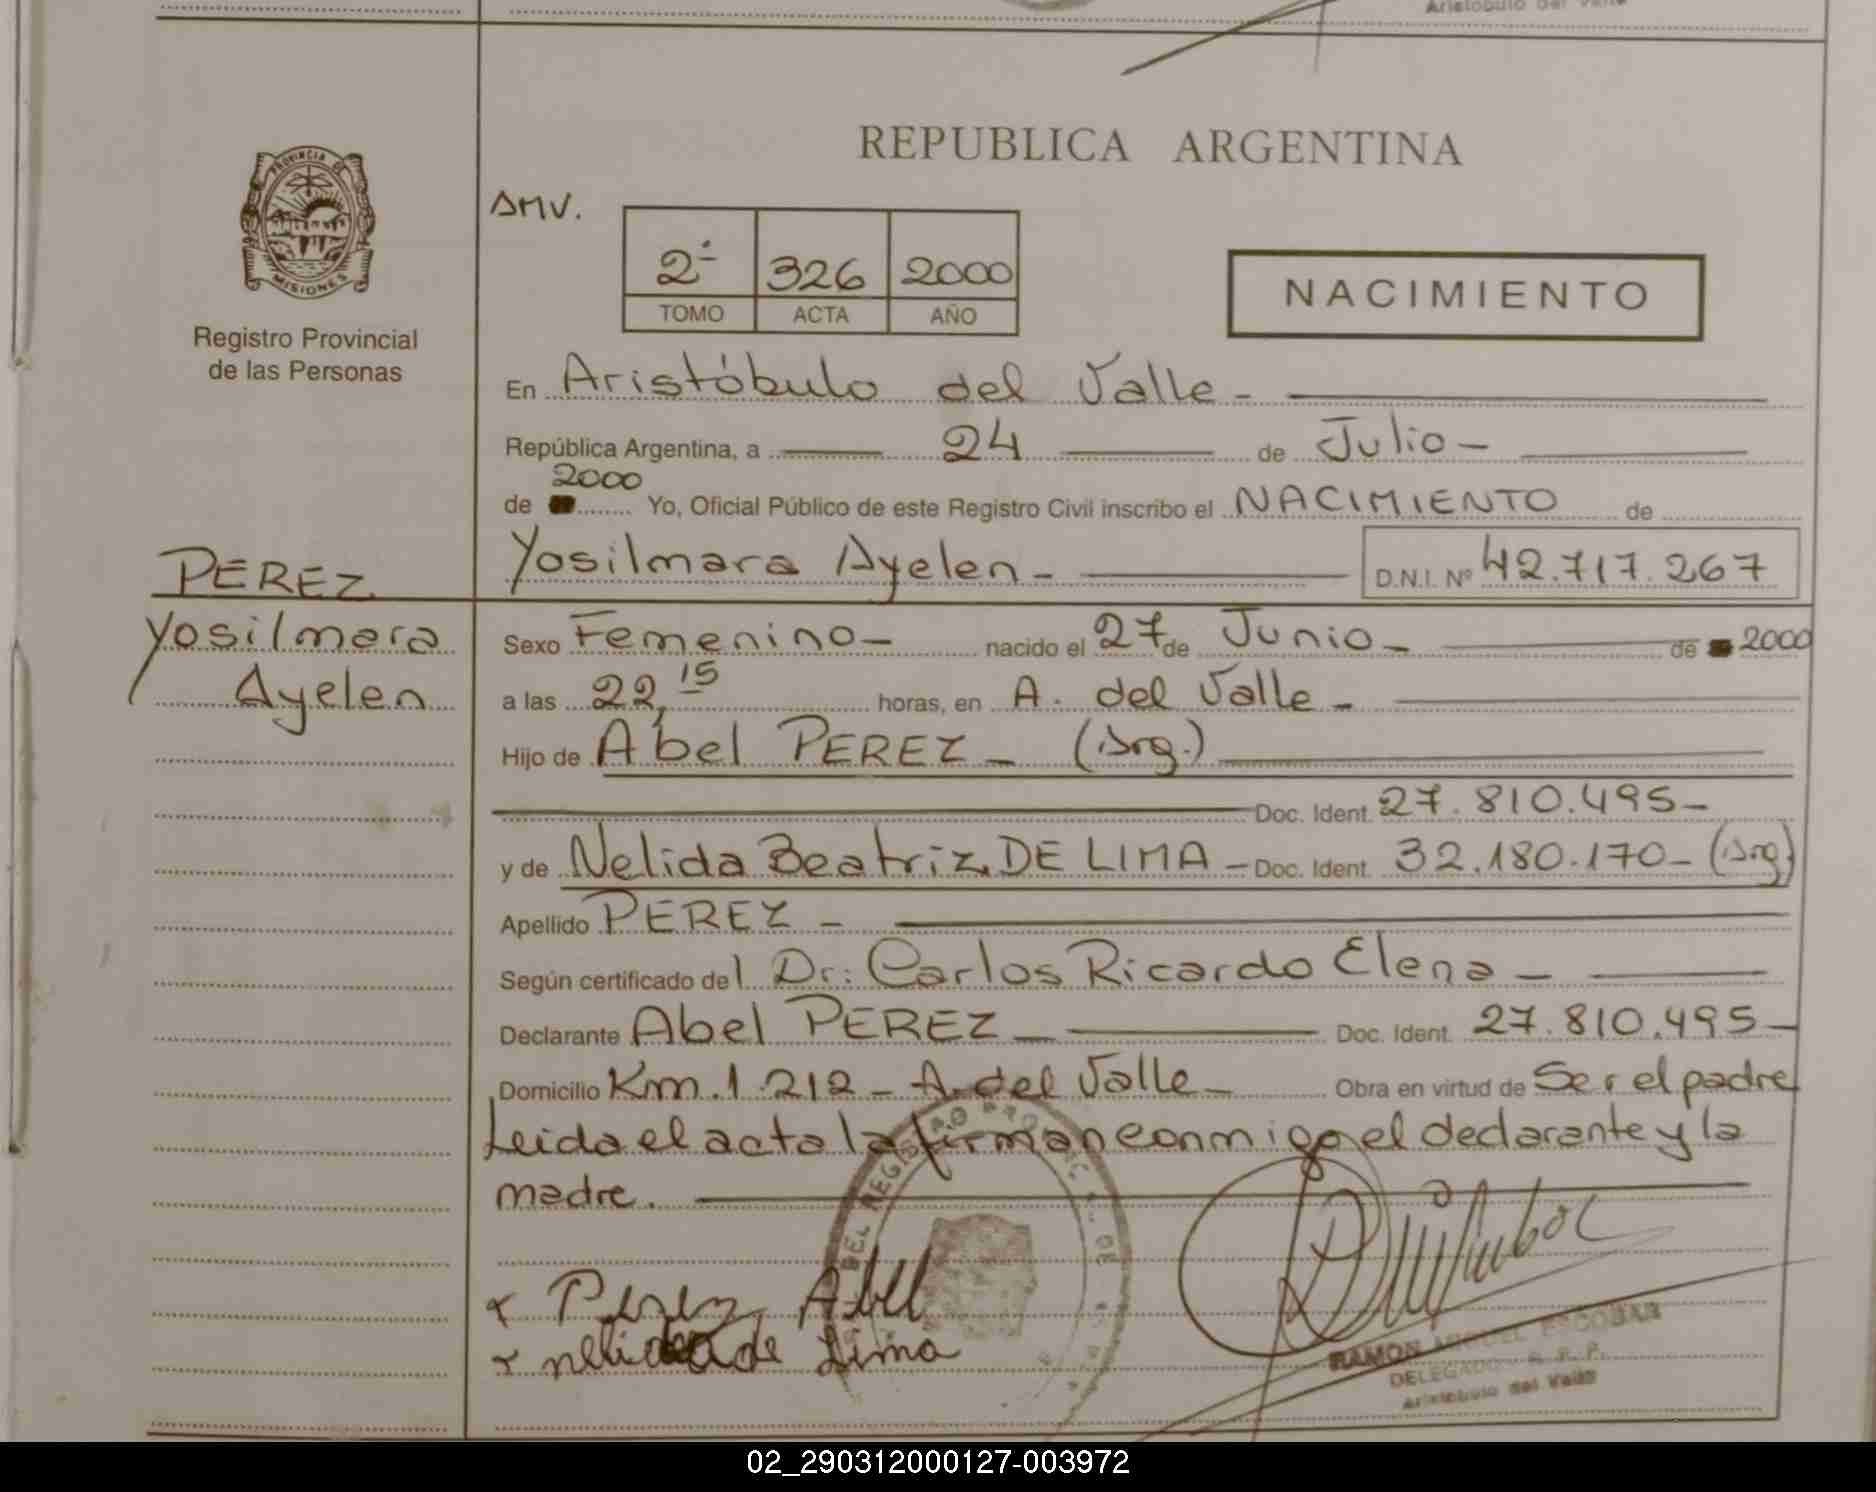 Aristóbulo del Valle
REPUBLICA ARGENTINA
PROVINCIA DE
MISIONES
Registro Provincial
de las Personas
AMV.
2- 326 2000
TOMO ACTA AÑO
NACIMIENTO
En Aristóbulo del Valle -
República Argentina, a 24 de Julio -
2000
de Yo, Oficial Público de este Registro Civil inscribo el NACIMIENTO de
PEREZ
Yosilmara Ayelen - D.N.I. Nº 42.717.267
Yosilmara
Ayelen
Sexo Femenino - nacido el 27 de Junio - de 2000
a las 22,15 horas, en A. del Valle -
Hijo de Abel PEREZ - (Arg.)
Doc. Ident. 27.810.495-
y de Nelida Beatriz DE LIMA - Doc. Ident. 32.180.170- (Arg)
Apellido PEREZ -
Según certificado del Dr: Carlos Ricardo Elena -
Declarante Abel PEREZ - Doc. Ident. 27.810.495-
Domicilio Km. 1.212 - A. del Valle - Obra en virtud de Ser el padre
Leida el acta la firman conmigo el declarante y la
madre.
x Perez Abel
x nelida de Lima
RAMON MIGUEL ESCOBAR
DELEGADO R. P. P.
Aristóbulo del Valle
02_290312000127-003972